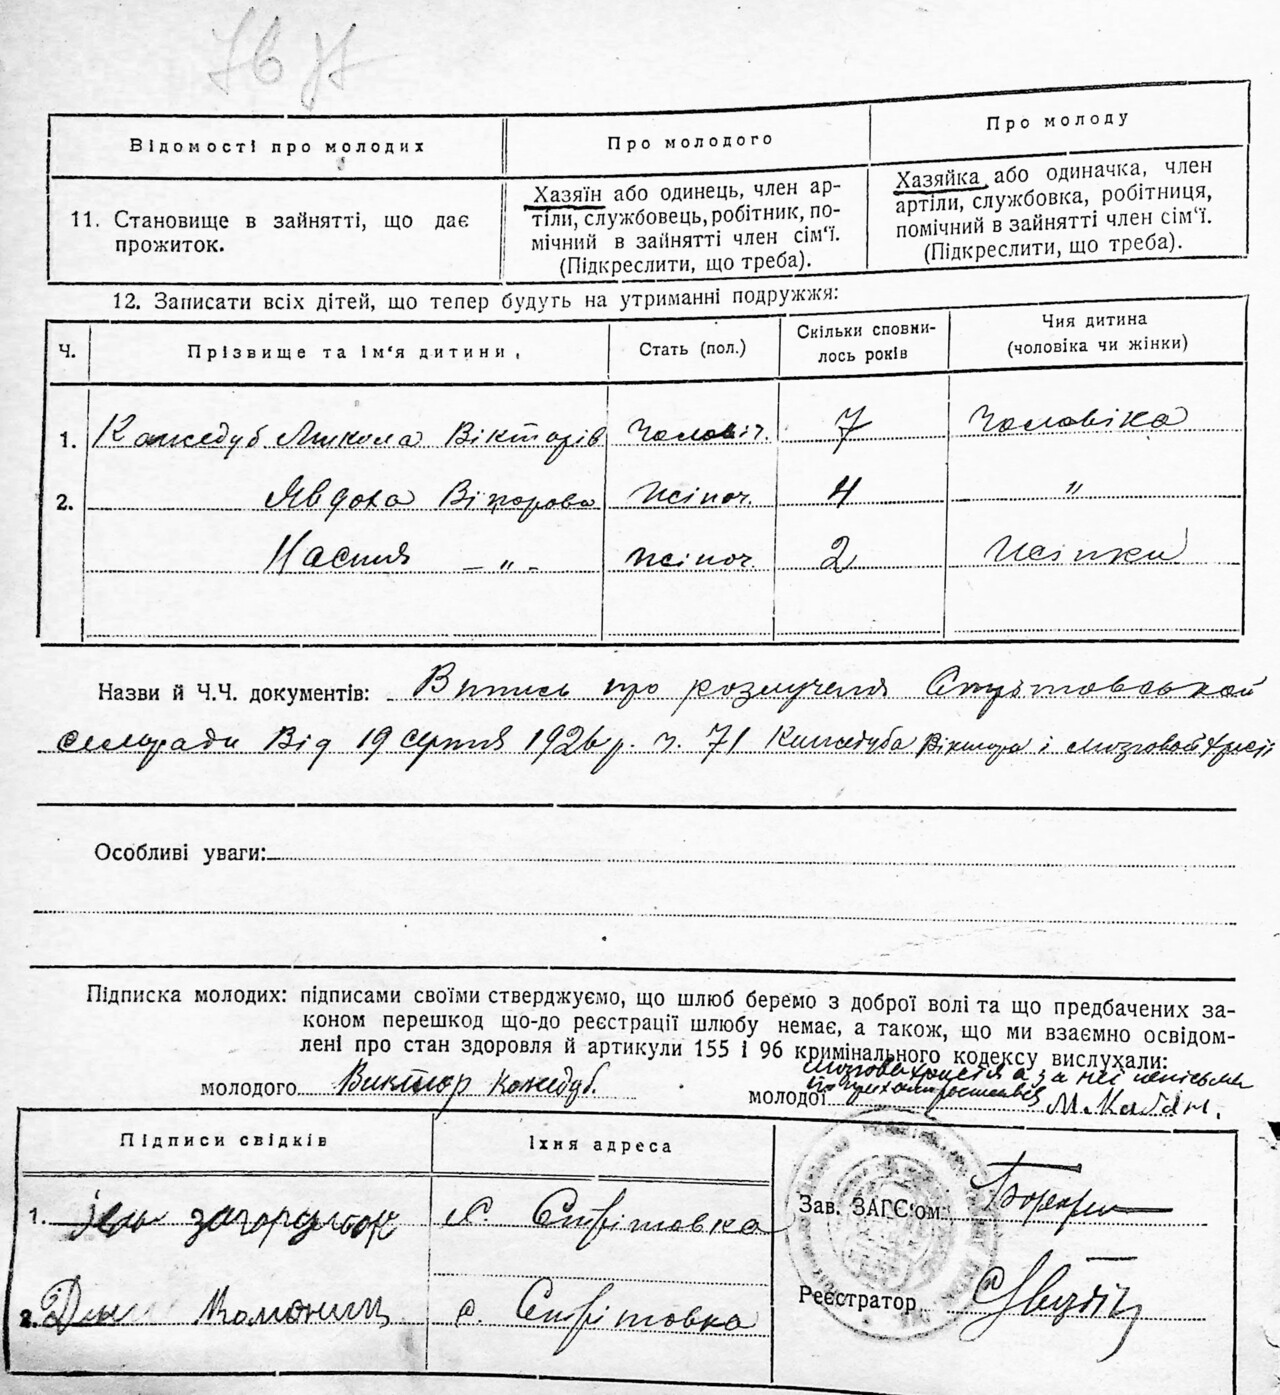 Відомості про молодих
Про молодого
Про молоду
11. Становище в зайнятті, що дає
прожиток.
Хазяїн або одинець, член ар-
тіли, службовець, робітник, по-
мічний в зайнятті член сім'ї.
(Підкреслити, що треба).
Хазяйка або одиначка, член
артіли, службовка, робітниця,
помічний в зайнятті член сім'ї.
(Підкреслити, що треба).
12. Записати всіх дітей, що тепер будуть на утриманні подружжя:
Ч.
Прізвище та ім'я дитини
Стать (пол.)
Скільки сповни-
лось років
Чия дитина
(чоловіка чи жінки)
1. Кожедуб Микола Вікторів чоловіч. 7 Чоловіка
2. Явдоха Вікторова жіноч. 4 "
Настя - " - жіноч. 2 Жінки
Назви й Ч.Ч. документів: Витись про розлучення
сельради від 19 серпня 1926 р. ч. 71 Кожедуба Віктора і Мозговой Христі
Особливі уваги:
Підписка молодих: підписами своїми стверджуємо, що шлюб беремо з доброї волі та що предбачених за-
коном перешкод що-до реєстрації шлюбу немає, а також, що ми взаємно освідом-
лені про стан здоровля й артикули 155 і 96 кримінального кодексу вислухали:
молодого Виктор Кожедуб.
Мозгова Христія а за неї
молодої М. Кабан.
Підписи свідків
Їхня адреса
1. с.
2. с.
Зав. ЗАГС'ом
Реєстратор